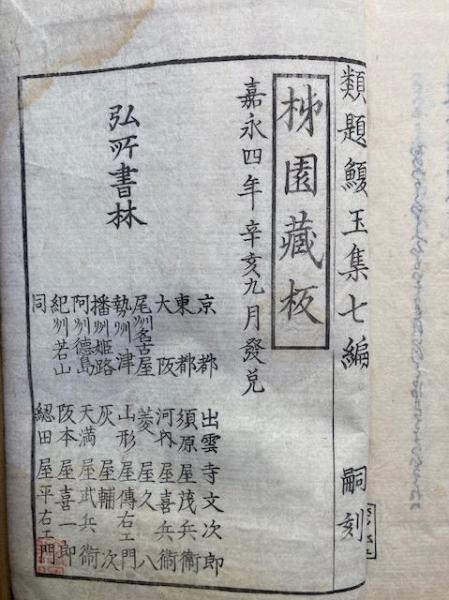 類題鰒玉集七編　嗣刻
柿園藏板
嘉永四年辛亥九月發兌
弘所書林
京都　出雲寺文次郎
東都　須原屋茂兵衛
大阪　河内屋喜兵衛
尾州名古屋　菱屋久八
勢州津　山形屋傳右エ門
播州姫路　灰屋輔次
阿州徳島　天満屋武兵衛
紀州若山　阪本屋喜一郎
同　綛田屋平右エ門